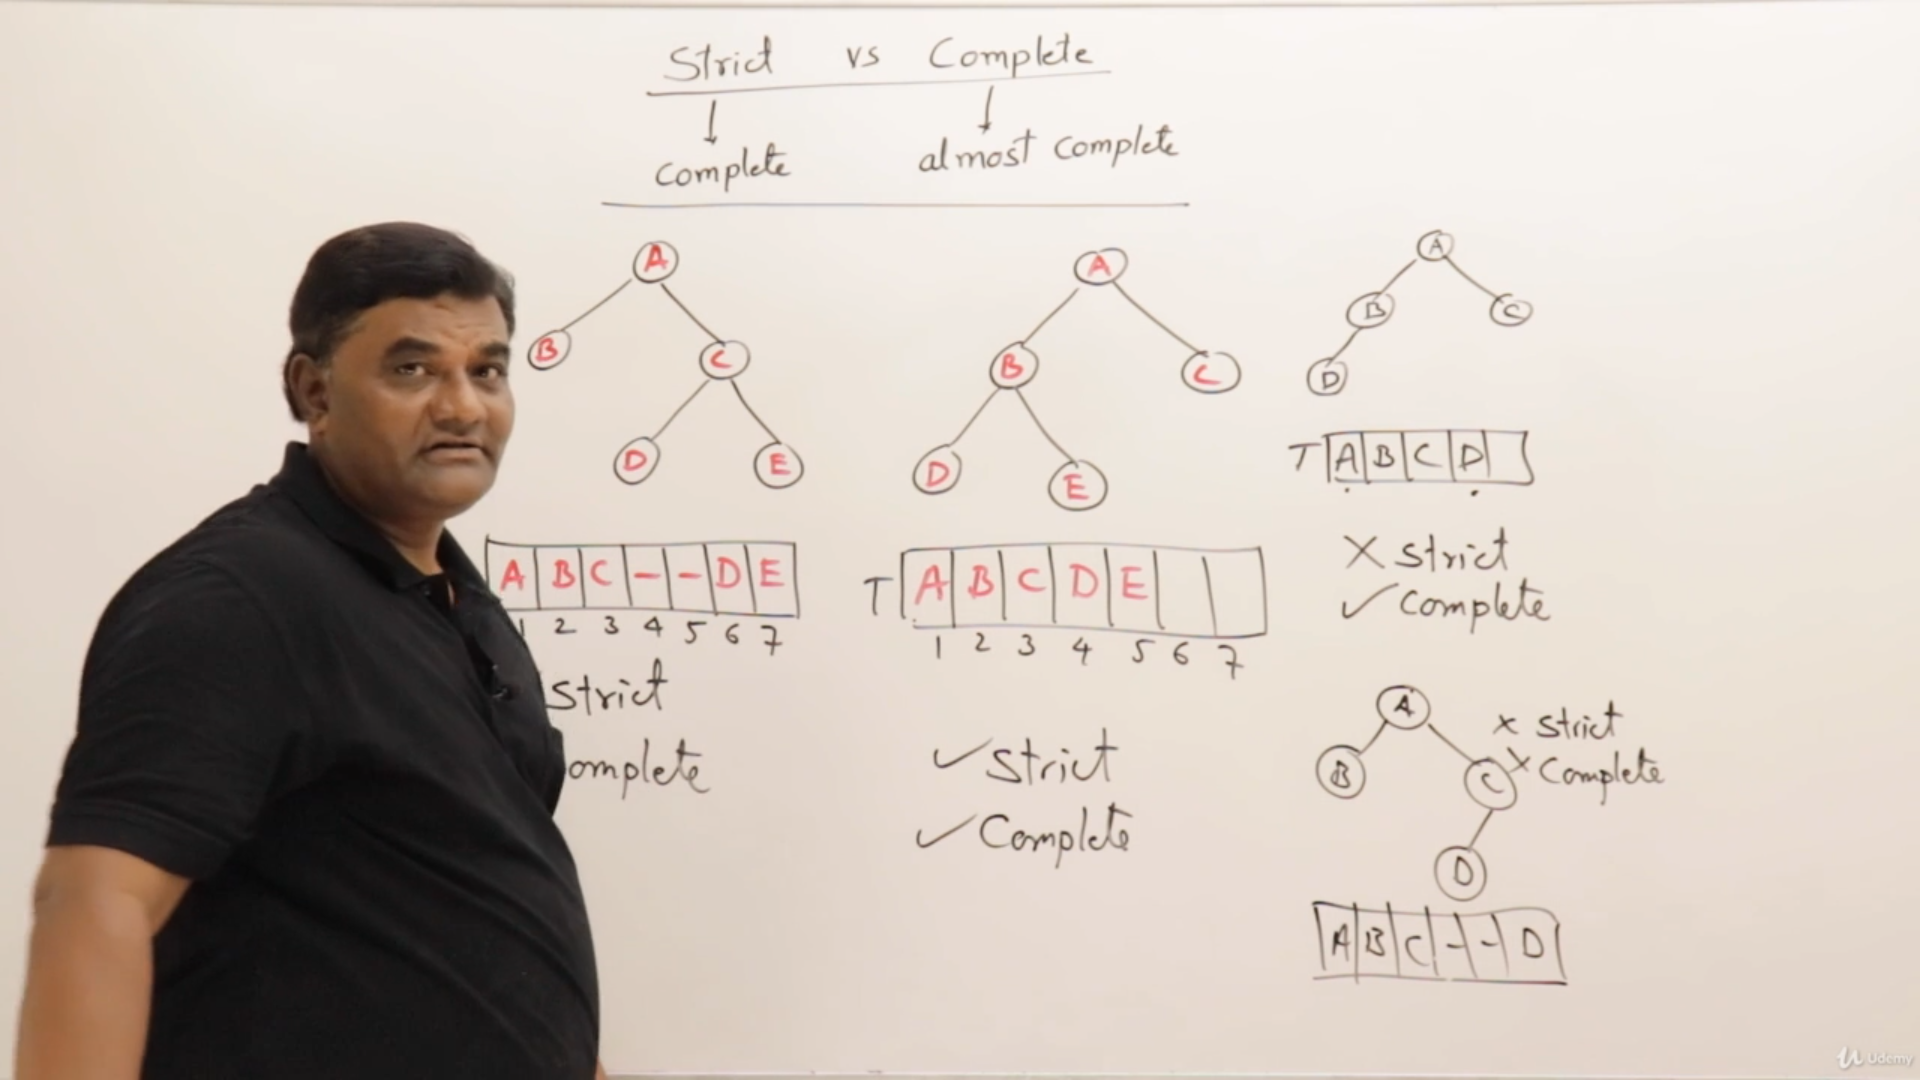 Strict vs Complete
Complete almost complete
A
B C
D E
A B C - - D E
1 2 3 4 5 6 7
Strict
omplete
A
B C
D E
T A B C D E
1 2 3 4 5 6 7
✓ Strict
✓ Complete
A
B C
D
T A B C D
X Strict
✓ Complete
A
B C
D
x Strict
x Complete
A B C - - D
Udemy